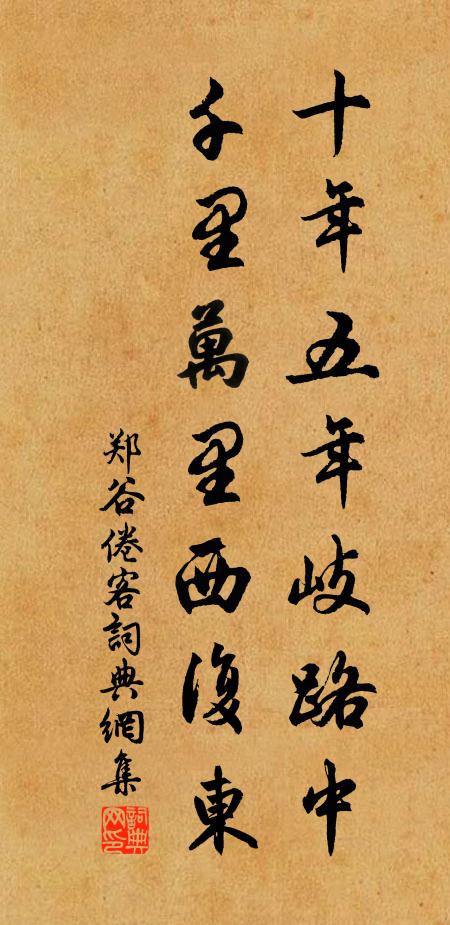 十年五年歧路中
千里萬里西復東
郑谷倦客詞典網集
詞典網印